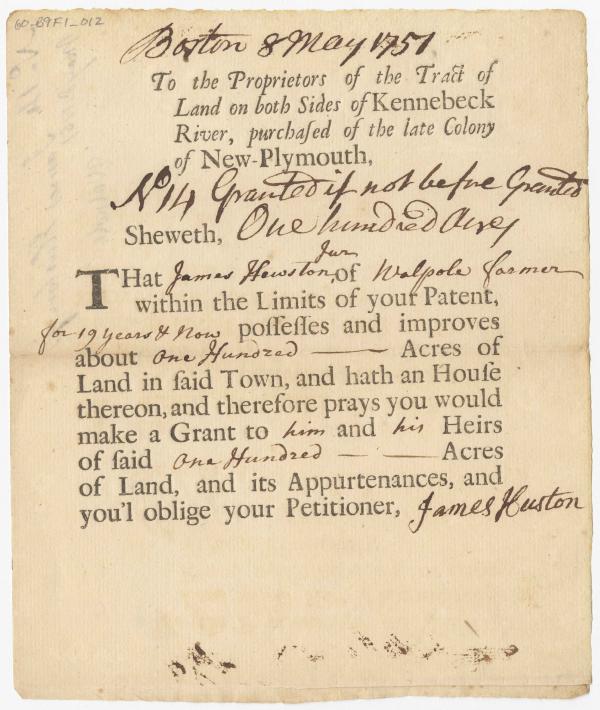 60-B9F1_012
Boston 8 May 1751
To the Proprietors of the Tract of
Land on both Sides of Kennebeck
River, purchaſed of the late Colony
of New-Plymouth,
No 14 Granted if not before Granted
Sheweth, One hundred Acres
Jun
THat James Hewston, of Walpole farmer
within the Limits of your Patent,
for 19 years & Now poſſeſſes and improves
about One Hundred —— Acres of
Land in ſaid Town, and hath an Houſe
thereon, and therefore prays you would
make a Grant to him and his Heirs
of ſaid One Hundred — — Acres
of Land, and its Appurtenances, and
you'l oblige your Petitioner, James Huston